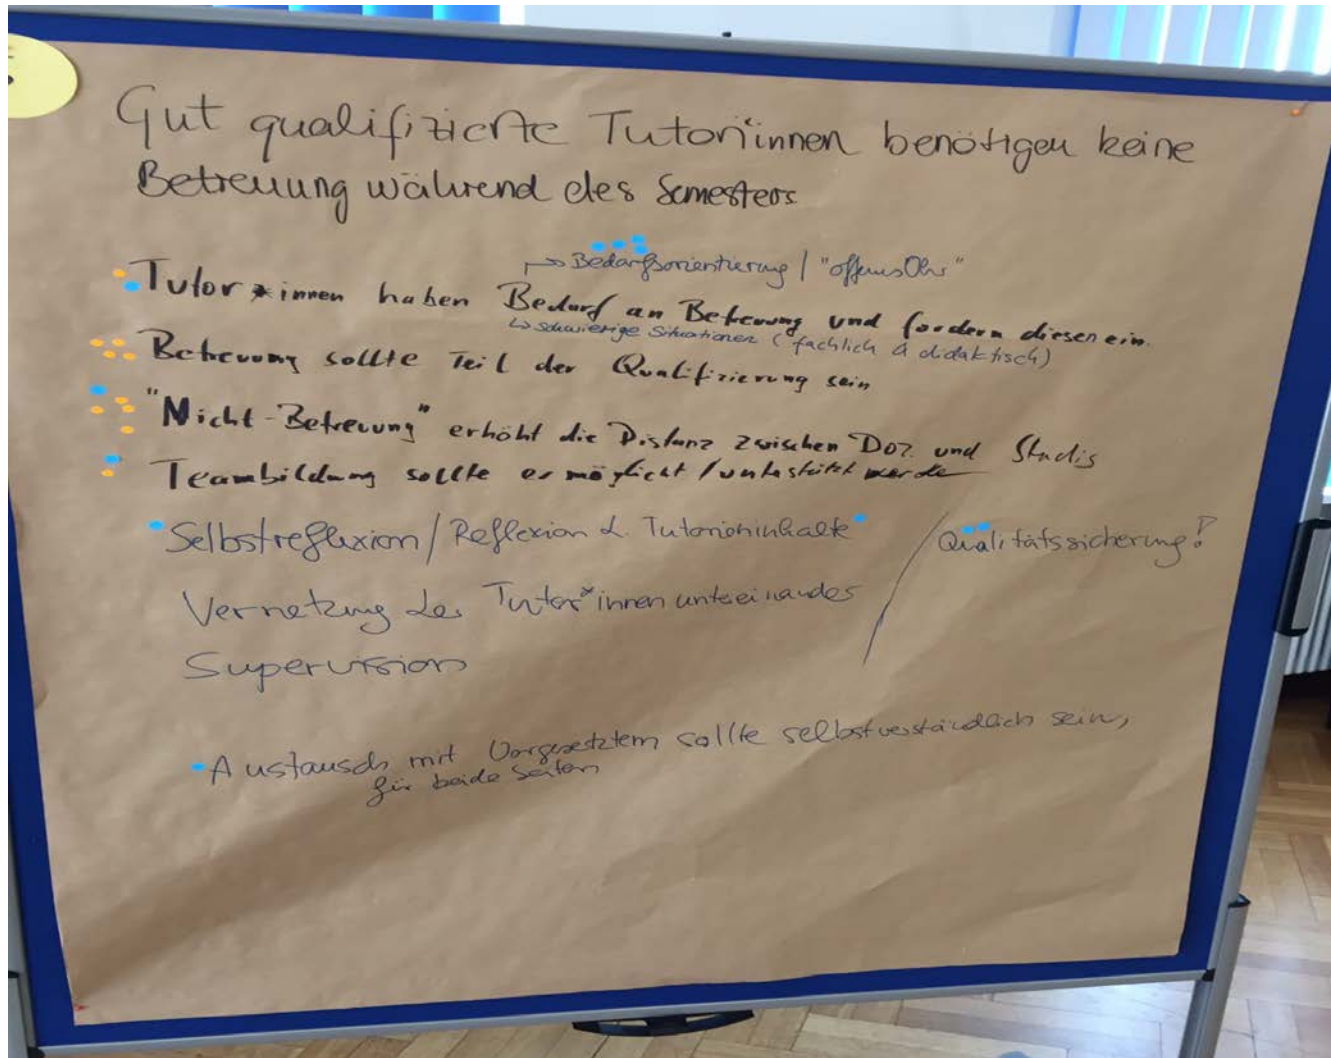 Gut qualifizierte Tutor*innen benötigen keine
Betreuung während des Semesters
→ Bedarfsorientierung / "offenes Ohr"
Tutor*innen haben Bedarf an Betreuung und fordern diesen ein.
↳ schwierige Situationen (fachlich & didaktisch)
Betreuung sollte Teil der Qualifizierung sein
"Nicht-Betreuung" erhöht die Distanz zwischen Doz. und Studis
Teambildung sollte ermöglicht / unterstützt werde
Selbstreflexion / Reflexion d. Tutorieninhalte / Qualitätssicherung!
Vernetzung der Tutor*innen untereinander
Supervision
Austausch mit Vorgesetztem sollte selbstverständlich sein,
für beide Seiten